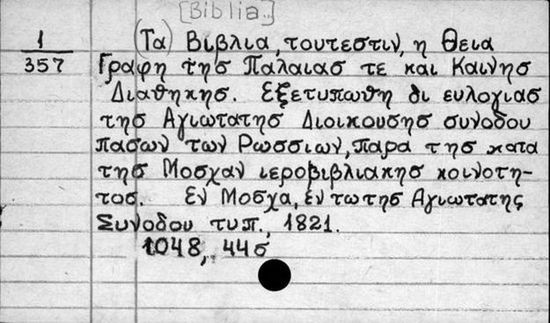 [Biblia.]
1
357
(Τα) Βιβλια, τουτεστιν, η Θεια
Γραφη της Παλαιασ τε και Καινησ
Διαθηκησ. Εξετυπωθη δι ευλογιασ
τησ Αγιωτατησ Διοικουσησ συνοδου
πασων των Ρωσσιων, παρα τησ κατα
τησ Μοσχαν ιεροβιβλιακησ κοινοτη-
τοσ. Εν Μοσχα, εν τω τησ Αγιωτατης
Συνοδου τυπ., 1821.
1048, 44σ